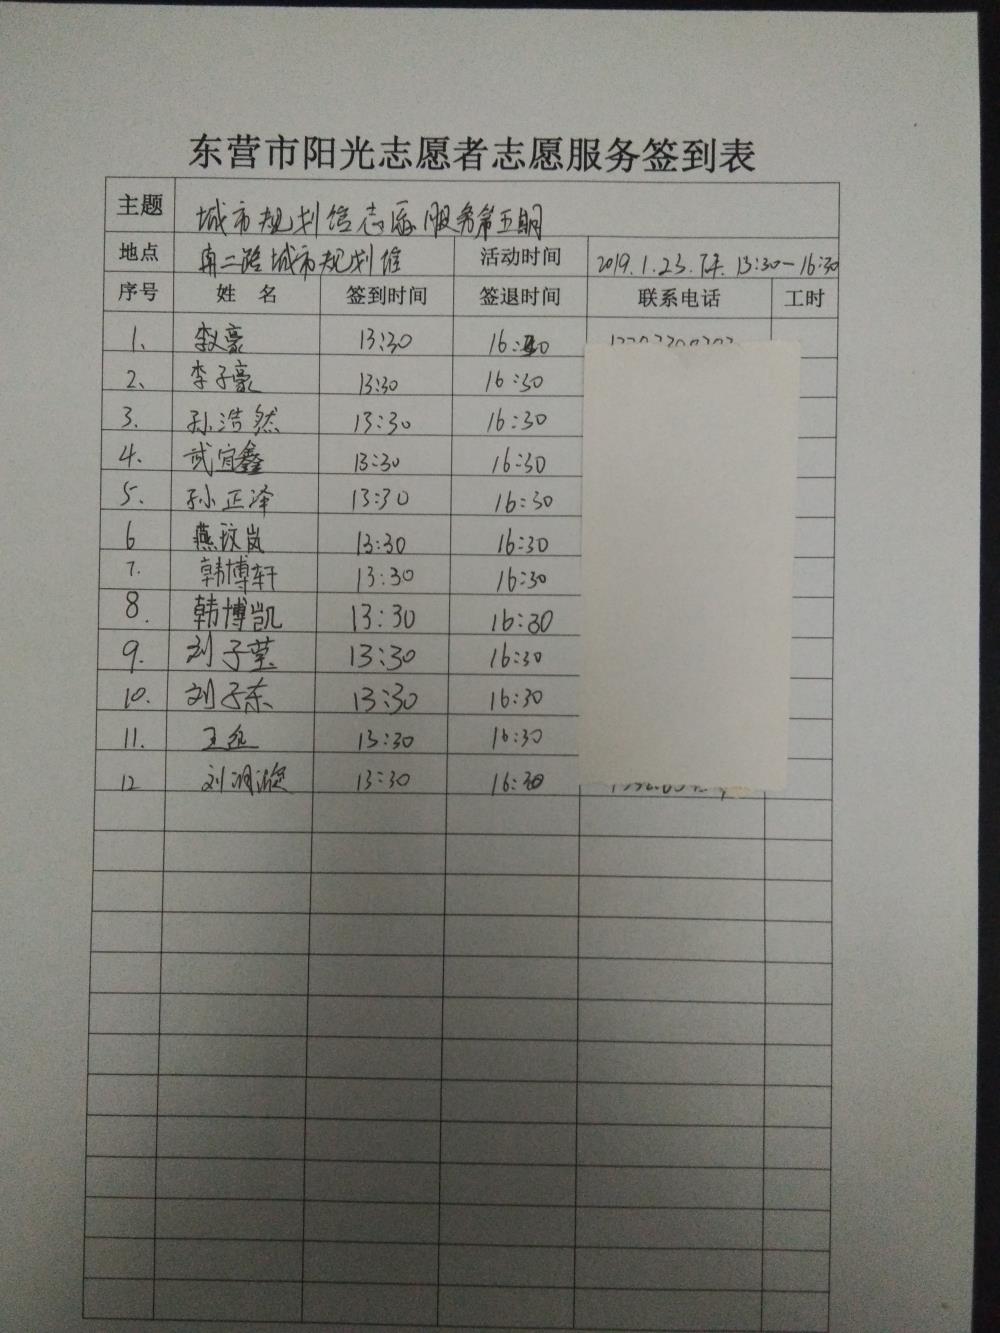 东营市阳光志愿者志愿服务签到表
主题 城市规划馆志愿服务第五期
地点 南二路城市规划馆 活动时间 2019.1.23.下午.13:30-16:30
序号 姓名 签到时间 签退时间 联系电话 工时
1、 李豪 13:30 16:30
2、 李子豪 13:30 16:30
3. 孙浩然 13:30 16:30
4. 武宜鑫 13:30 16:30
5. 孙正泽 13:30 16:30
6 燕玟岚 13:30 16:30
7. 韩博轩 13:30 16:30
8. 韩博凯 13:30 16:30
9. 刘子莹 13:30 16:30
10. 刘子东 13:30 16:30
11. 王 13:30 16:30
12 刘润漩 13:30 16:30